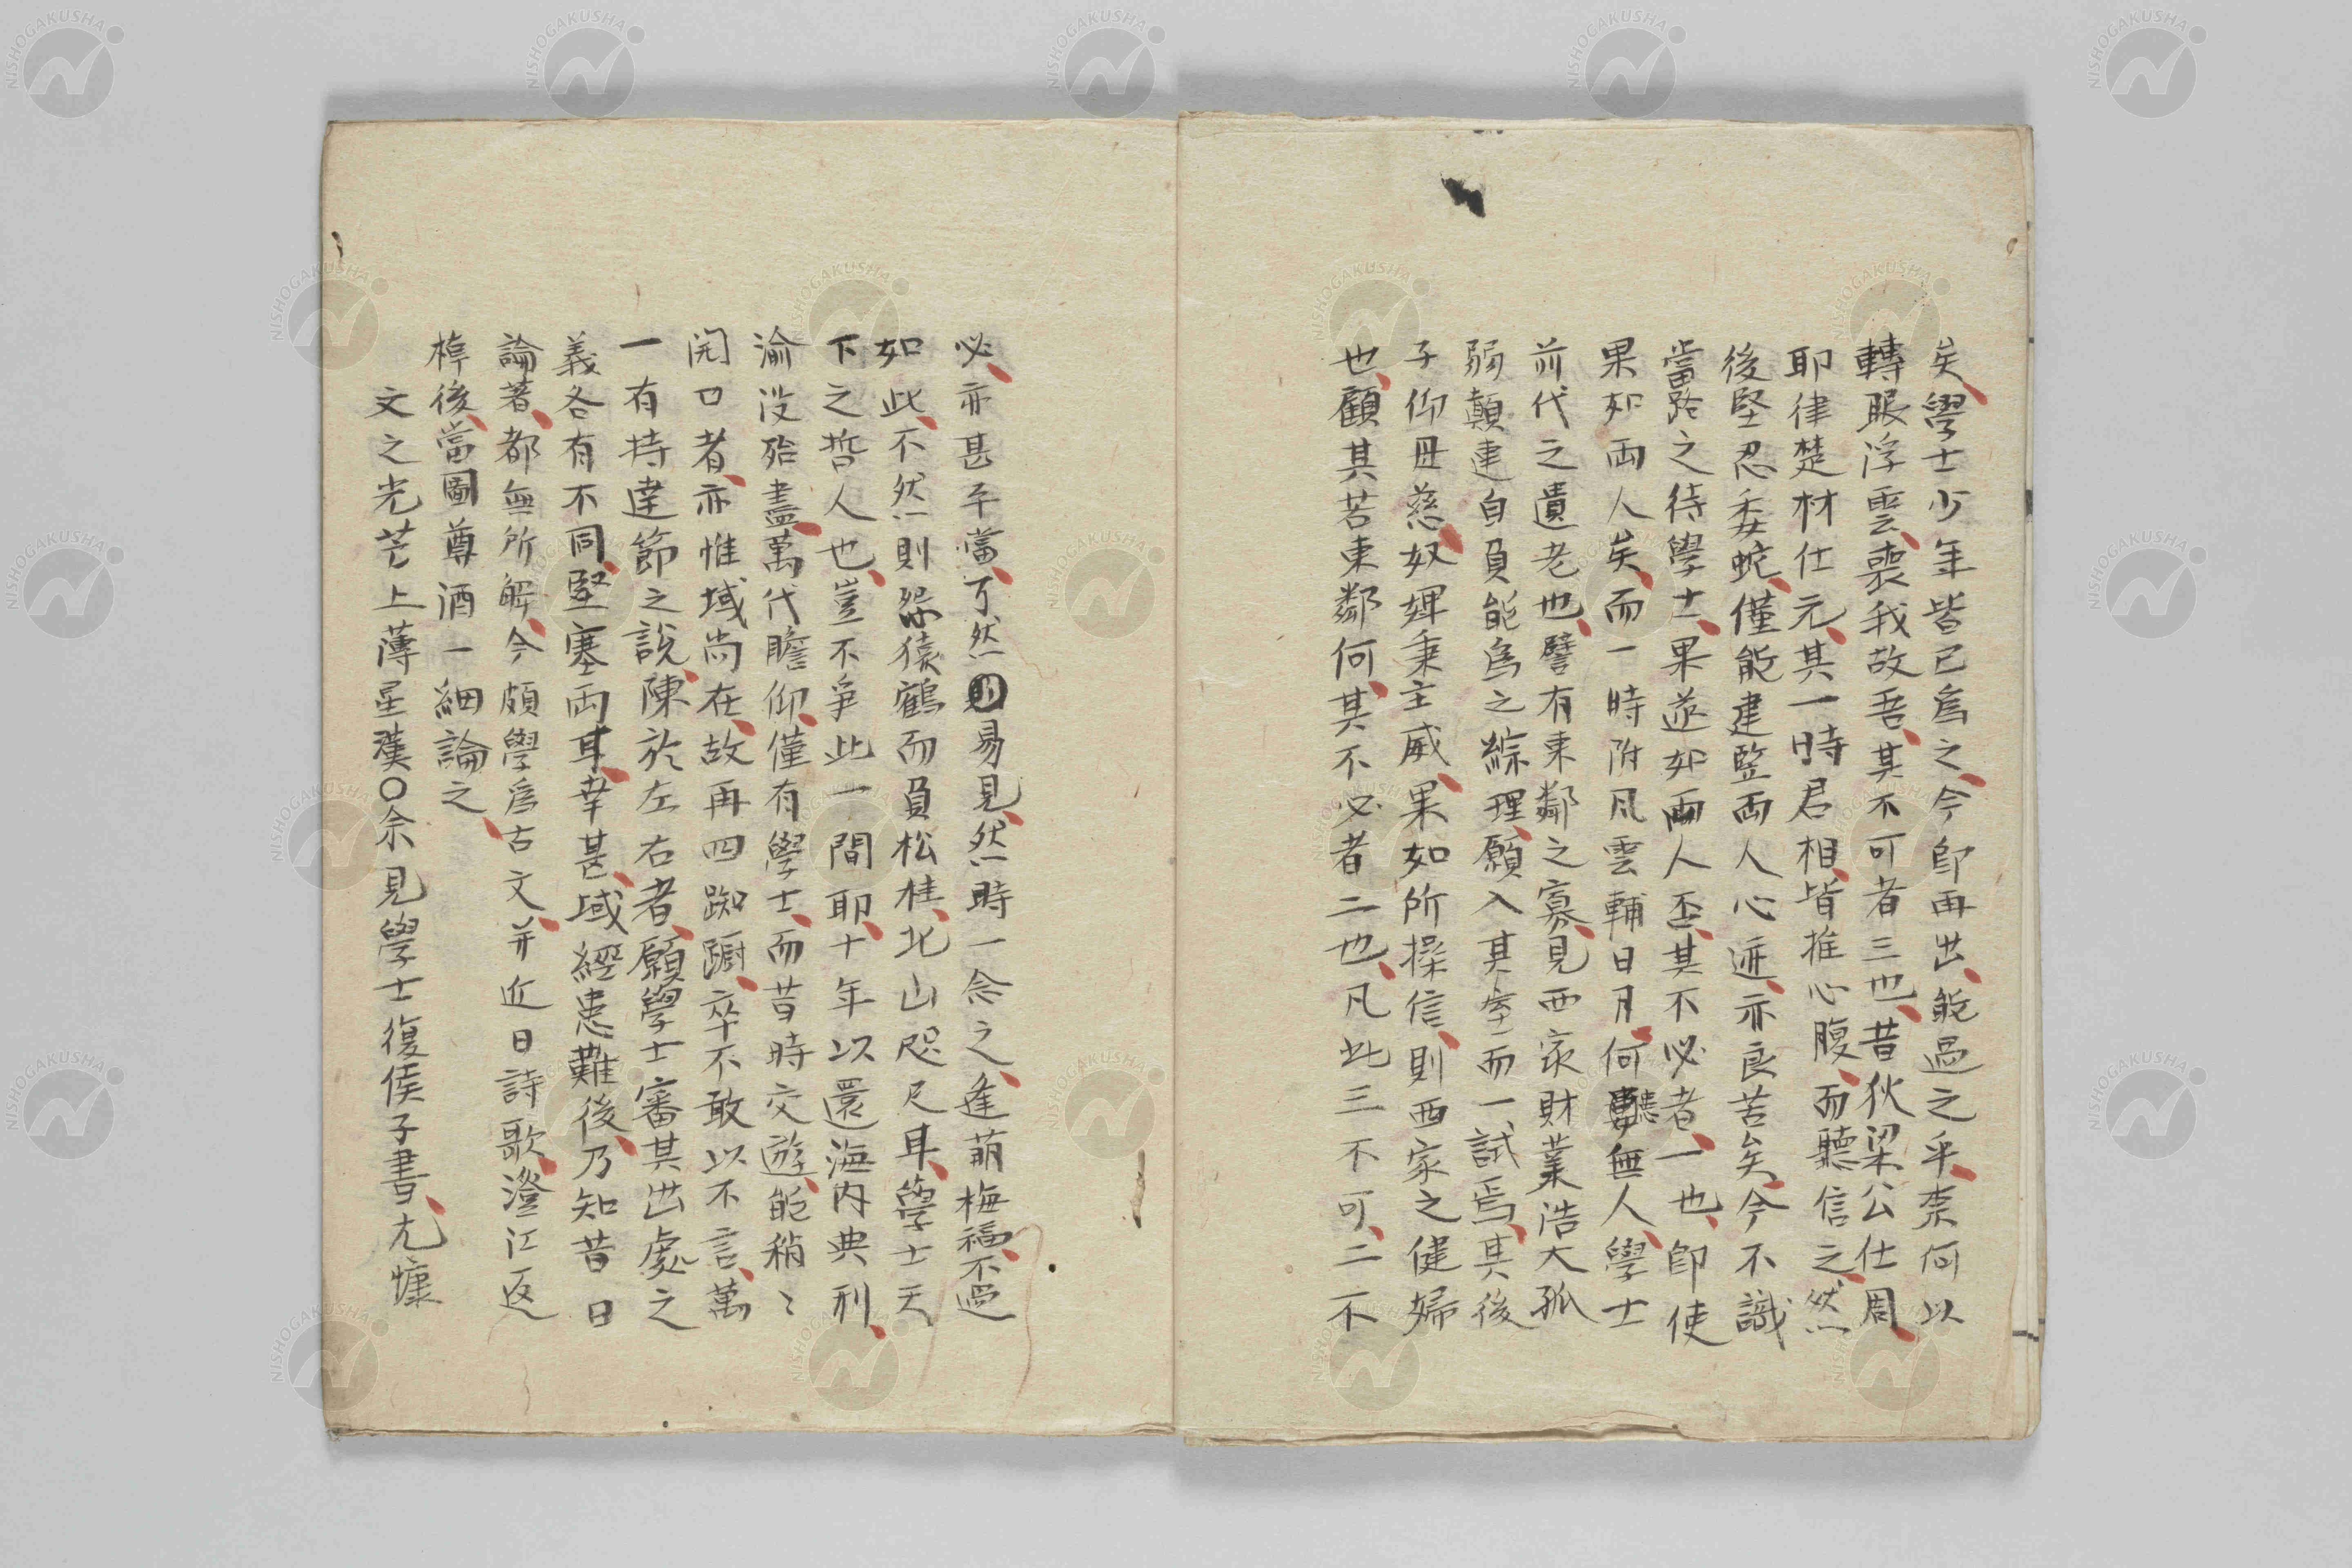 矣學士少年皆已爲之今卽再出能過之乎柰何以
轉眼浮雲喪我故吾其不可者三也昔狄梁公仕周
耶律楚材仕元其一時君相皆推心腹而聽信之然
後堅忍委蛇僅能建竪兩人心迹亦良苦矣今不識
當路之待學士果遂如兩人否其不必者一也卽使
果如兩人矣而一時附風雲輔日月何患無人學士
前代之遺老也譬有東鄰之寡見西家財業浩大孤
弱顛連自負能爲之綜理願入其室而一試焉其後
子仰毋慈奴婢秉主威果如所操信則西家之健婦
也顧其苦東鄰何其不必者二也凡此三不可二不
必亦甚平當了然易見然時一念之逢萌梅福不過
如此不然則怨猿鶴而負松桂北山咫尺耳學士天
下之哲人也豈不爭此一間耶十年以還海內典刑
淪沒殆盡萬代瞻仰僅有學士而昔時交遊能稍〻
開口者亦惟域尚在故再四踟躕卒不敢以不言萬
一有持達節之說陳於左右者願學士審其出處之
義各有不同堅塞兩耳幸甚域經患難後乃知昔日
論著都無所解今頗學爲古文并近日詩歌澄江返
棹後當圖尊酒一細論之
文之光芒上薄星漢○余見學士復侯子書尤慷